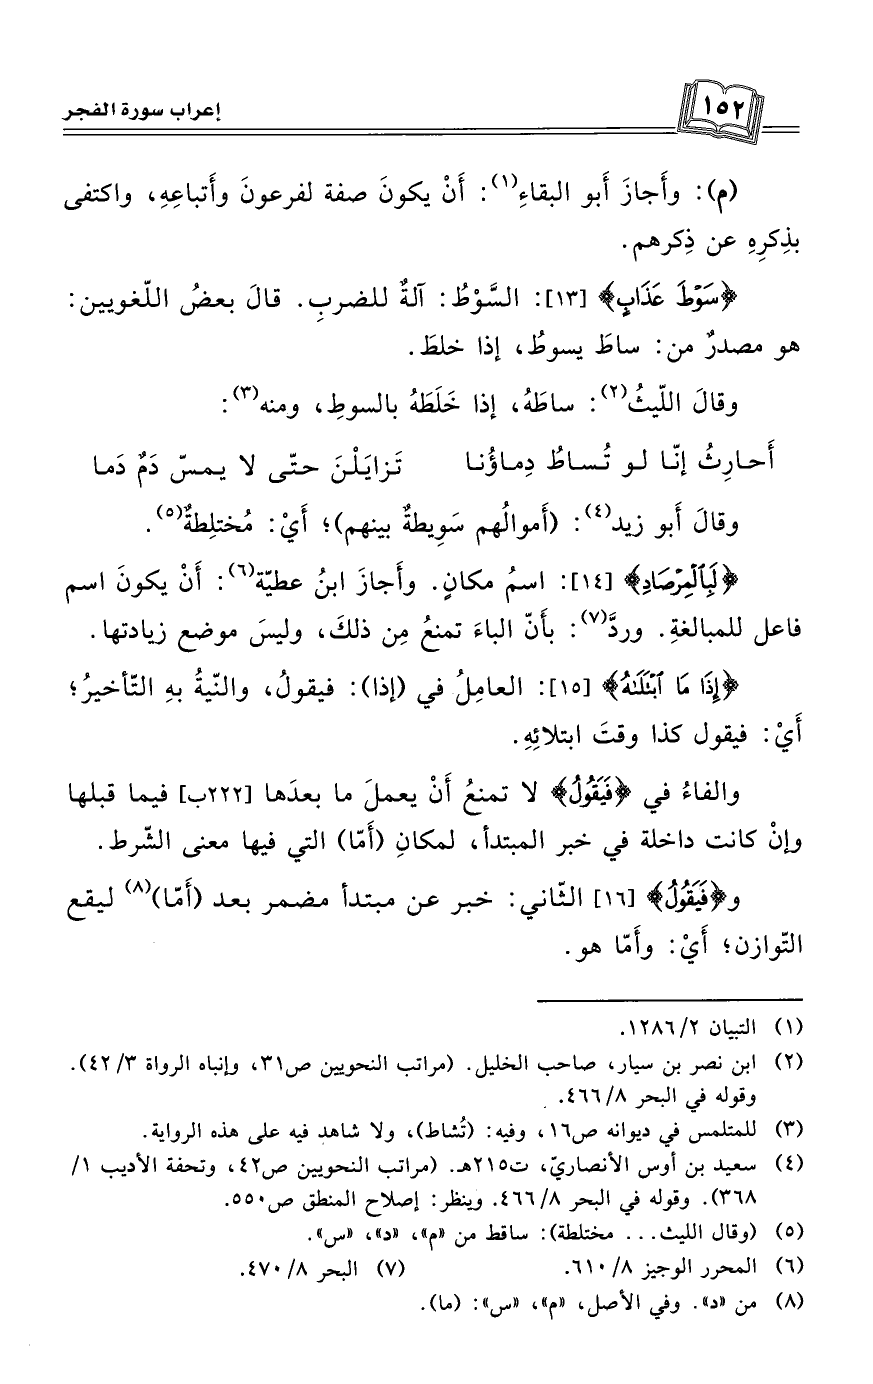 ١٥٢ إعراب سورة الفجر
(م): وأجازَ أبو البقاءِ(١): أَنْ يكونَ صفة لفرعونَ وأتباعِهِ، واكتفى
بذِكرِهِ عن ذِكرهم.
﴿سَوْطَ عَذَابٍ﴾ [١٣]: السَّوْطُ: آلةٌ للضربِ. قالَ بعضُ اللّغويين:
هو مصدرٌ من: ساطَ يسوطُ، إذا خلطَ.
وقالَ اللّيثُ(٢): ساطَهُ، إذا خَلَطَهُ بالسوطِ، ومنه(٣):
أَحارِثُ إنّا لو تُساطُ دِماؤُنا تَزايَلْنَ حتّى لا يمسّ دَمٌ دَما
وقالَ أَبو زيد(٤): (أموالُهم سَوِيطةٌ بينهم)؛ أَيْ: مُختلِطةٌ(٥).
﴿لَبِٱلْمِرْصَادِ﴾ [١٤]: اسمُ مكانٍ. وأجازَ ابنُ عطيّة(٦): أَنْ يكونَ اسم
فاعل للمبالغةِ. وردَّ(٧): بأنّ الباءَ تمنعُ مِن ذلكَ، وليسَ موضع زيادتها.
﴿إِذَا مَا ٱبْتَلَىٰهُ﴾ [١٥]: العامِلُ في (إذا): فيقولُ، والنّيةُ بهِ التّأخيرُ؛
أَيْ: فيقول كذا وقتَ ابتلائِهِ.
والفاءُ في ﴿فَيَقُولُ﴾ لا تمنعُ أَنْ يعملَ ما بعدَها [٢٢٢ب] فيما قبلها
وإنْ كانت داخلة في خبر المبتدأ، لمكانِ (أَمّا) التي فيها معنى الشّرط.
و﴿فَيَقُولُ﴾ [١٦] الثّاني: خبر عن مبتدأ مضمر بعد (أَمّا)(٨) ليقع
التّوازن؛ أَيْ: وأَمّا هو.
(١) التبيان ٢/ ١٢٨٦.
(٢) ابن نصر بن سيار، صاحب الخليل. (مراتب النحويين ص٣١، وإنباه الرواة ٣/ ٤٢).
وقوله في البحر ٨/ ٤٦٦.
(٣) للمتلمس في ديوانه ص١٦، وفيه: (تُشاط)، ولا شاهد فيه على هذه الرواية.
(٤) سعيد بن أوس الأنصاريّ، ت٢١٥هـ. (مراتب النحويين ص٤٢، وتحفة الأديب ١/
٣٦٨). وقوله في البحر ٨/ ٤٦٦. وينظر: إصلاح المنطق ص٥٥٠.
(٥) (وقال الليث... مختلطة): ساقط من «م»، «د»، «س».
(٦) المحرر الوجيز ٨/ ٦١٠. (٧) البحر ٨/ ٤٧٠.
(٨) من «د». وفي الأصل، «م»، «س»: (ما).